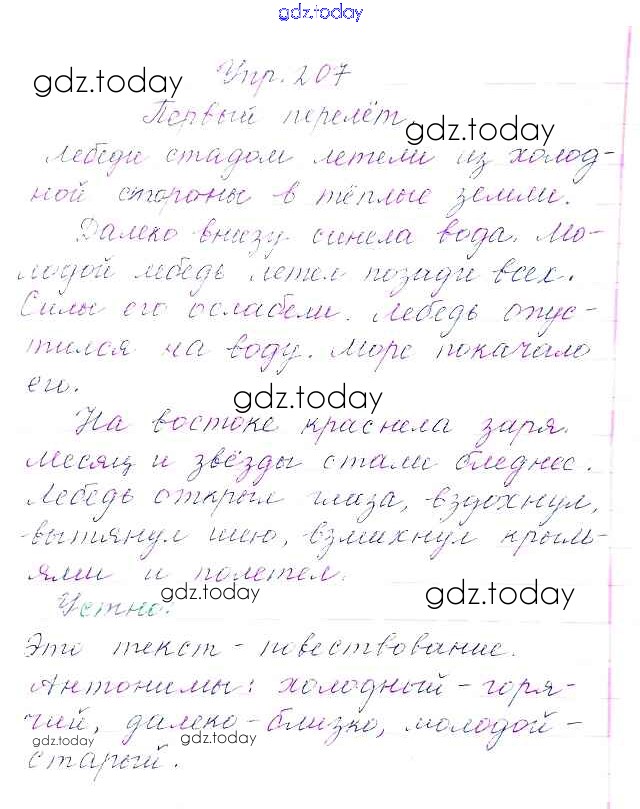 gdz.today
Упр. 207
gdz.today
Первый перелёт.
gdz.today
Лебеди стадом летели из холод-
ной стороны в тёплые земли.
Далеко внизу синела вода. Мо-
лодой лебедь летел позади всех.
Силы его ослабели. Лебедь опус-
тился на воду. Море покачало
его.
gdz.today
На востоке краснела заря.
Месяц и звёзды стали бледнее.
Лебедь открыл глаза, вздохнул,
вытянул шею, взмахнул крыль-
ями и полетел.
gdz.today
gdz.today
Устно:
Это текст - повествование.
Антонимы: холодный - горя-
чий, далеко - близко, молодой -
gdz.today
gdz.today
старый.